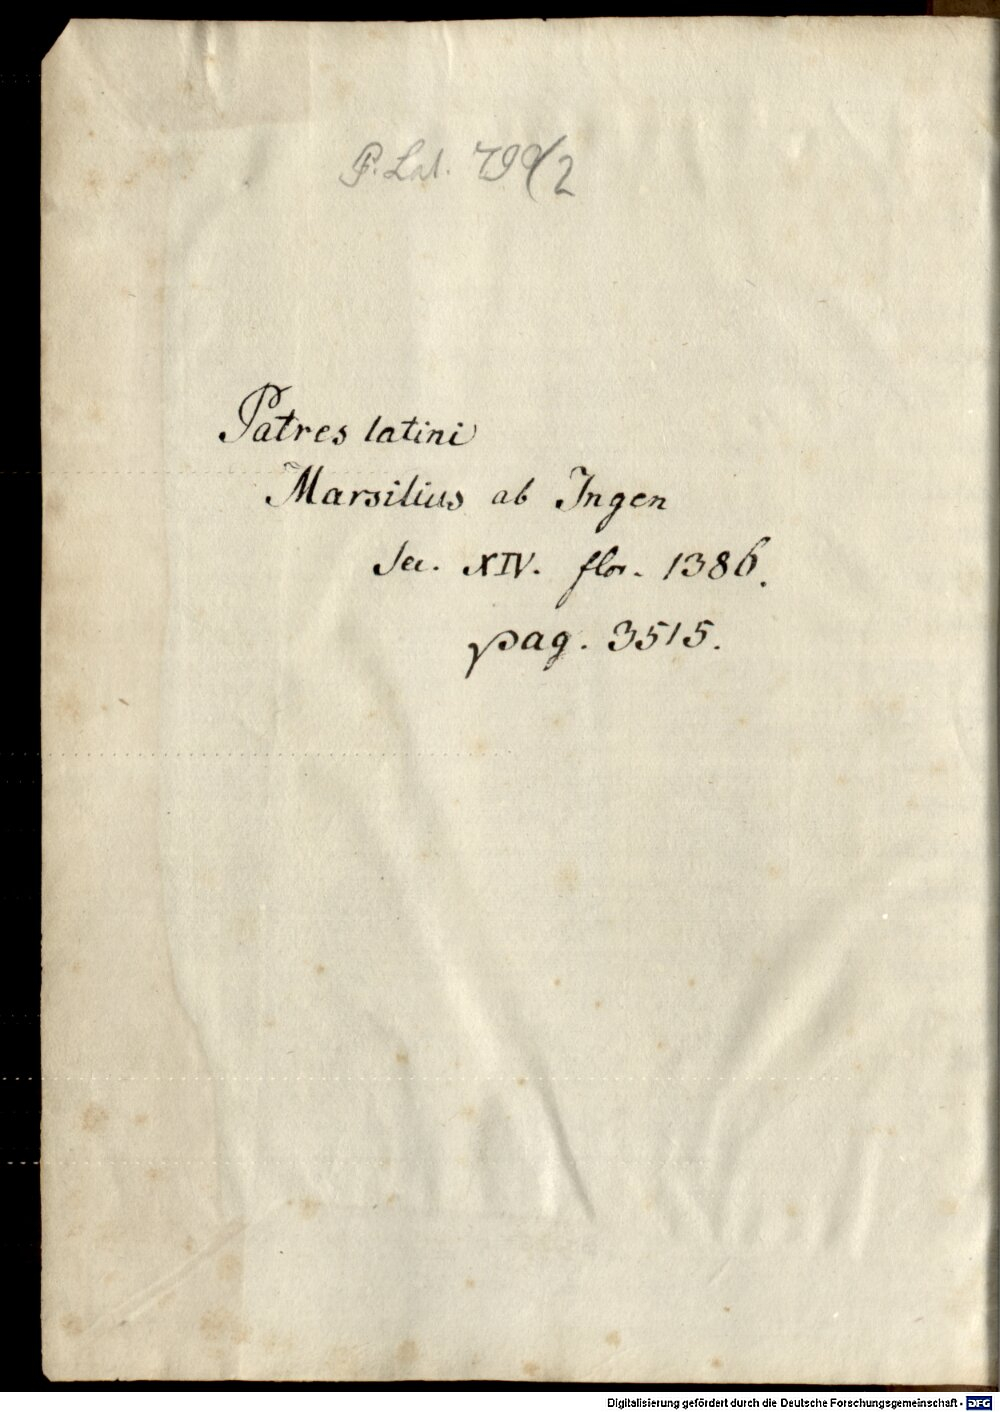 P. Lat. 799/2
Patres latini
Marsilius ab Ingen
Sec. XIV. flor. 1386.
pag. 3515.
Digitalisierung gefördert durch die Deutsche Forschungsgemeinschaft - DFG